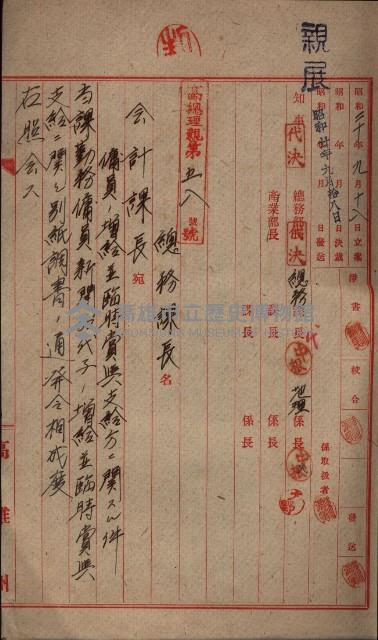 親展
昭和二十年九月十八日立案
昭和 年 月 日決裁
昭和廿年九月拾八日發送
淨書
校合
發送
知事
代決
總務部長
代決
產業部長
總務課長
代
課長
課長
係長
係長
係長
係取扱者
高總理親第五八號
號
總務課長名
会計課長宛
傭員ノ増給並臨時賞與支給方ニ関スル件
当課勤務傭員新関 代子ノ増給並臨時賞與
支給ニ関シ別紙調書ノ通発令相成度
右照会ス
高雄州
高雄市立歷史博物館
KAOHSIUNG MUSEUM OF HISTORY